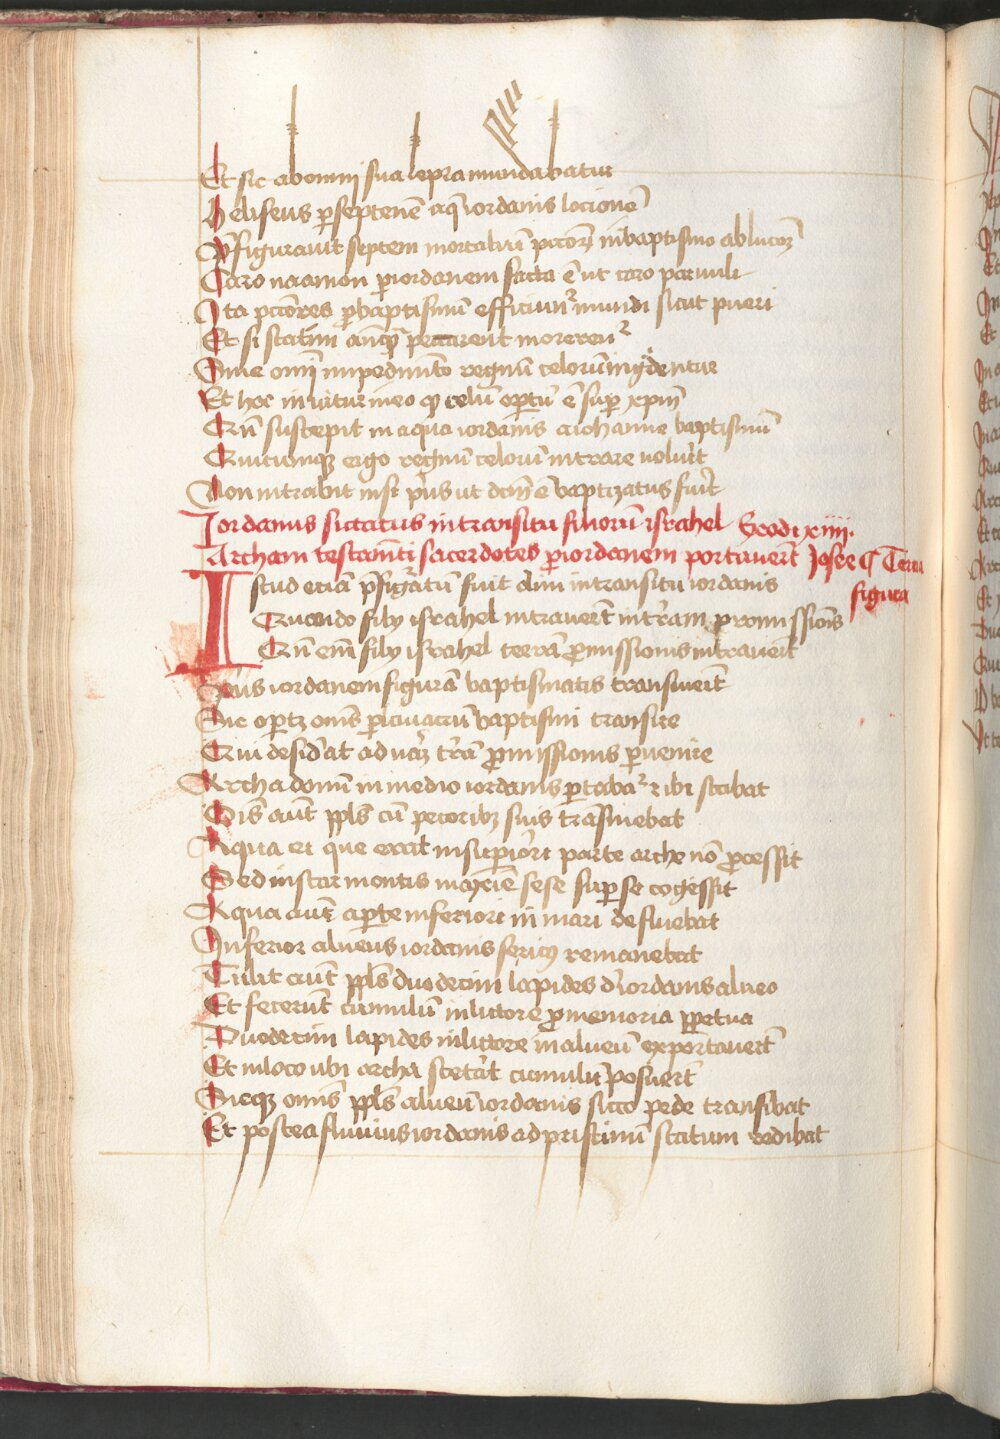 Et sic ab omni sua lepra mundabatur
Heliseus p septenē aq̄ iordanis locionē
P̄figurauit septem mortaliū pctōꝝ in baptismo ablucōꝝ
Caro naamon p iordanem facta ē ut caro paruuli
Ita pctōres p baptismū efficiunt᷑ mundi sicut pueri
Et si statim anq̄ peccarent moreren᷑
Sine omī impedimto regnū celorū ingrederentur
Et hoc innuitur in eo ꝙ celū optū ē sup xpm̄
Cū suscepit in aqua iordanis a iohanne baptismū
Quicumqꝫ ergo regnū celorū intrare uolu̅it
Non intrabit nisi p̅us ut dcm̄ ē baptizatus fu̅it
Iordanus siccatus in transitu filiorū israhel Exodi xiiij.
Archam testamti sacerdotes p iordanem portauer̅t Josee ¶ Tercia
figura
Istud eciā p̄figuratū fuit olim in transitu iordanis
Quando filij israhel intrauer̅t in tr̅am promissionis
Cū enī filij israhel terrā p̱missionis intrauer̅t
Prius iordanem figurā baptismatis transiuer̅t
Sic oportꝫ om̅s p lauacrū baptismi transire
Qui desid̅at ad uerā tr̅ā p̱missionis p̱uenire
Archa domī in medio iordanis portaba᷑ ⁊ ibi stabat
Om̅is aut̅ pplūs cū pecoribꝫ suis trāsiuebat
Aqua ei que erat in sup̱iori parte arche nō p̱cessit
Sed instar montis maxīe sese sup se cogessit
Aqua aut̅ a p̱te inferiori in mari defluebat
Inferior alueus iordanis siccus remanebat
Tulit aut̅ pplūs duodecim lapides d̅ iordanis alueo
Et fecer̅t cumulū in littore p̱ memoria ppetua
Duodecim lapides in littore in alueū exportauer̅t
Et in loco ubi archa stet̅at cumulū posuer̅t
Sicqꝫ om̅is pplūs alueū iordanis sicco pede transibat
Et postea fluuius iordanis ad pristinū statum redibat